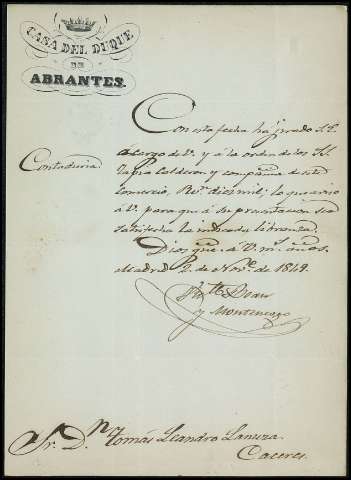 CASA DEL DUQUE
DE
ABRANTES.
Contaduria.
Con esta fecha há girado S.E.
á cargo de V. y á la orden de los SS.
Tapia Calderon y compañia de este
comercio, Rvn. diez mil; lo que aviso
á V. para que á su presentacion sea
satisfecha la indicada libranza.
Dios gue. á V. ms. años.
Madrid 2 de Nove. de 1849.
y Montenegro
Sr. Dn. Tomás Leandro Lanuza.
Caceres.